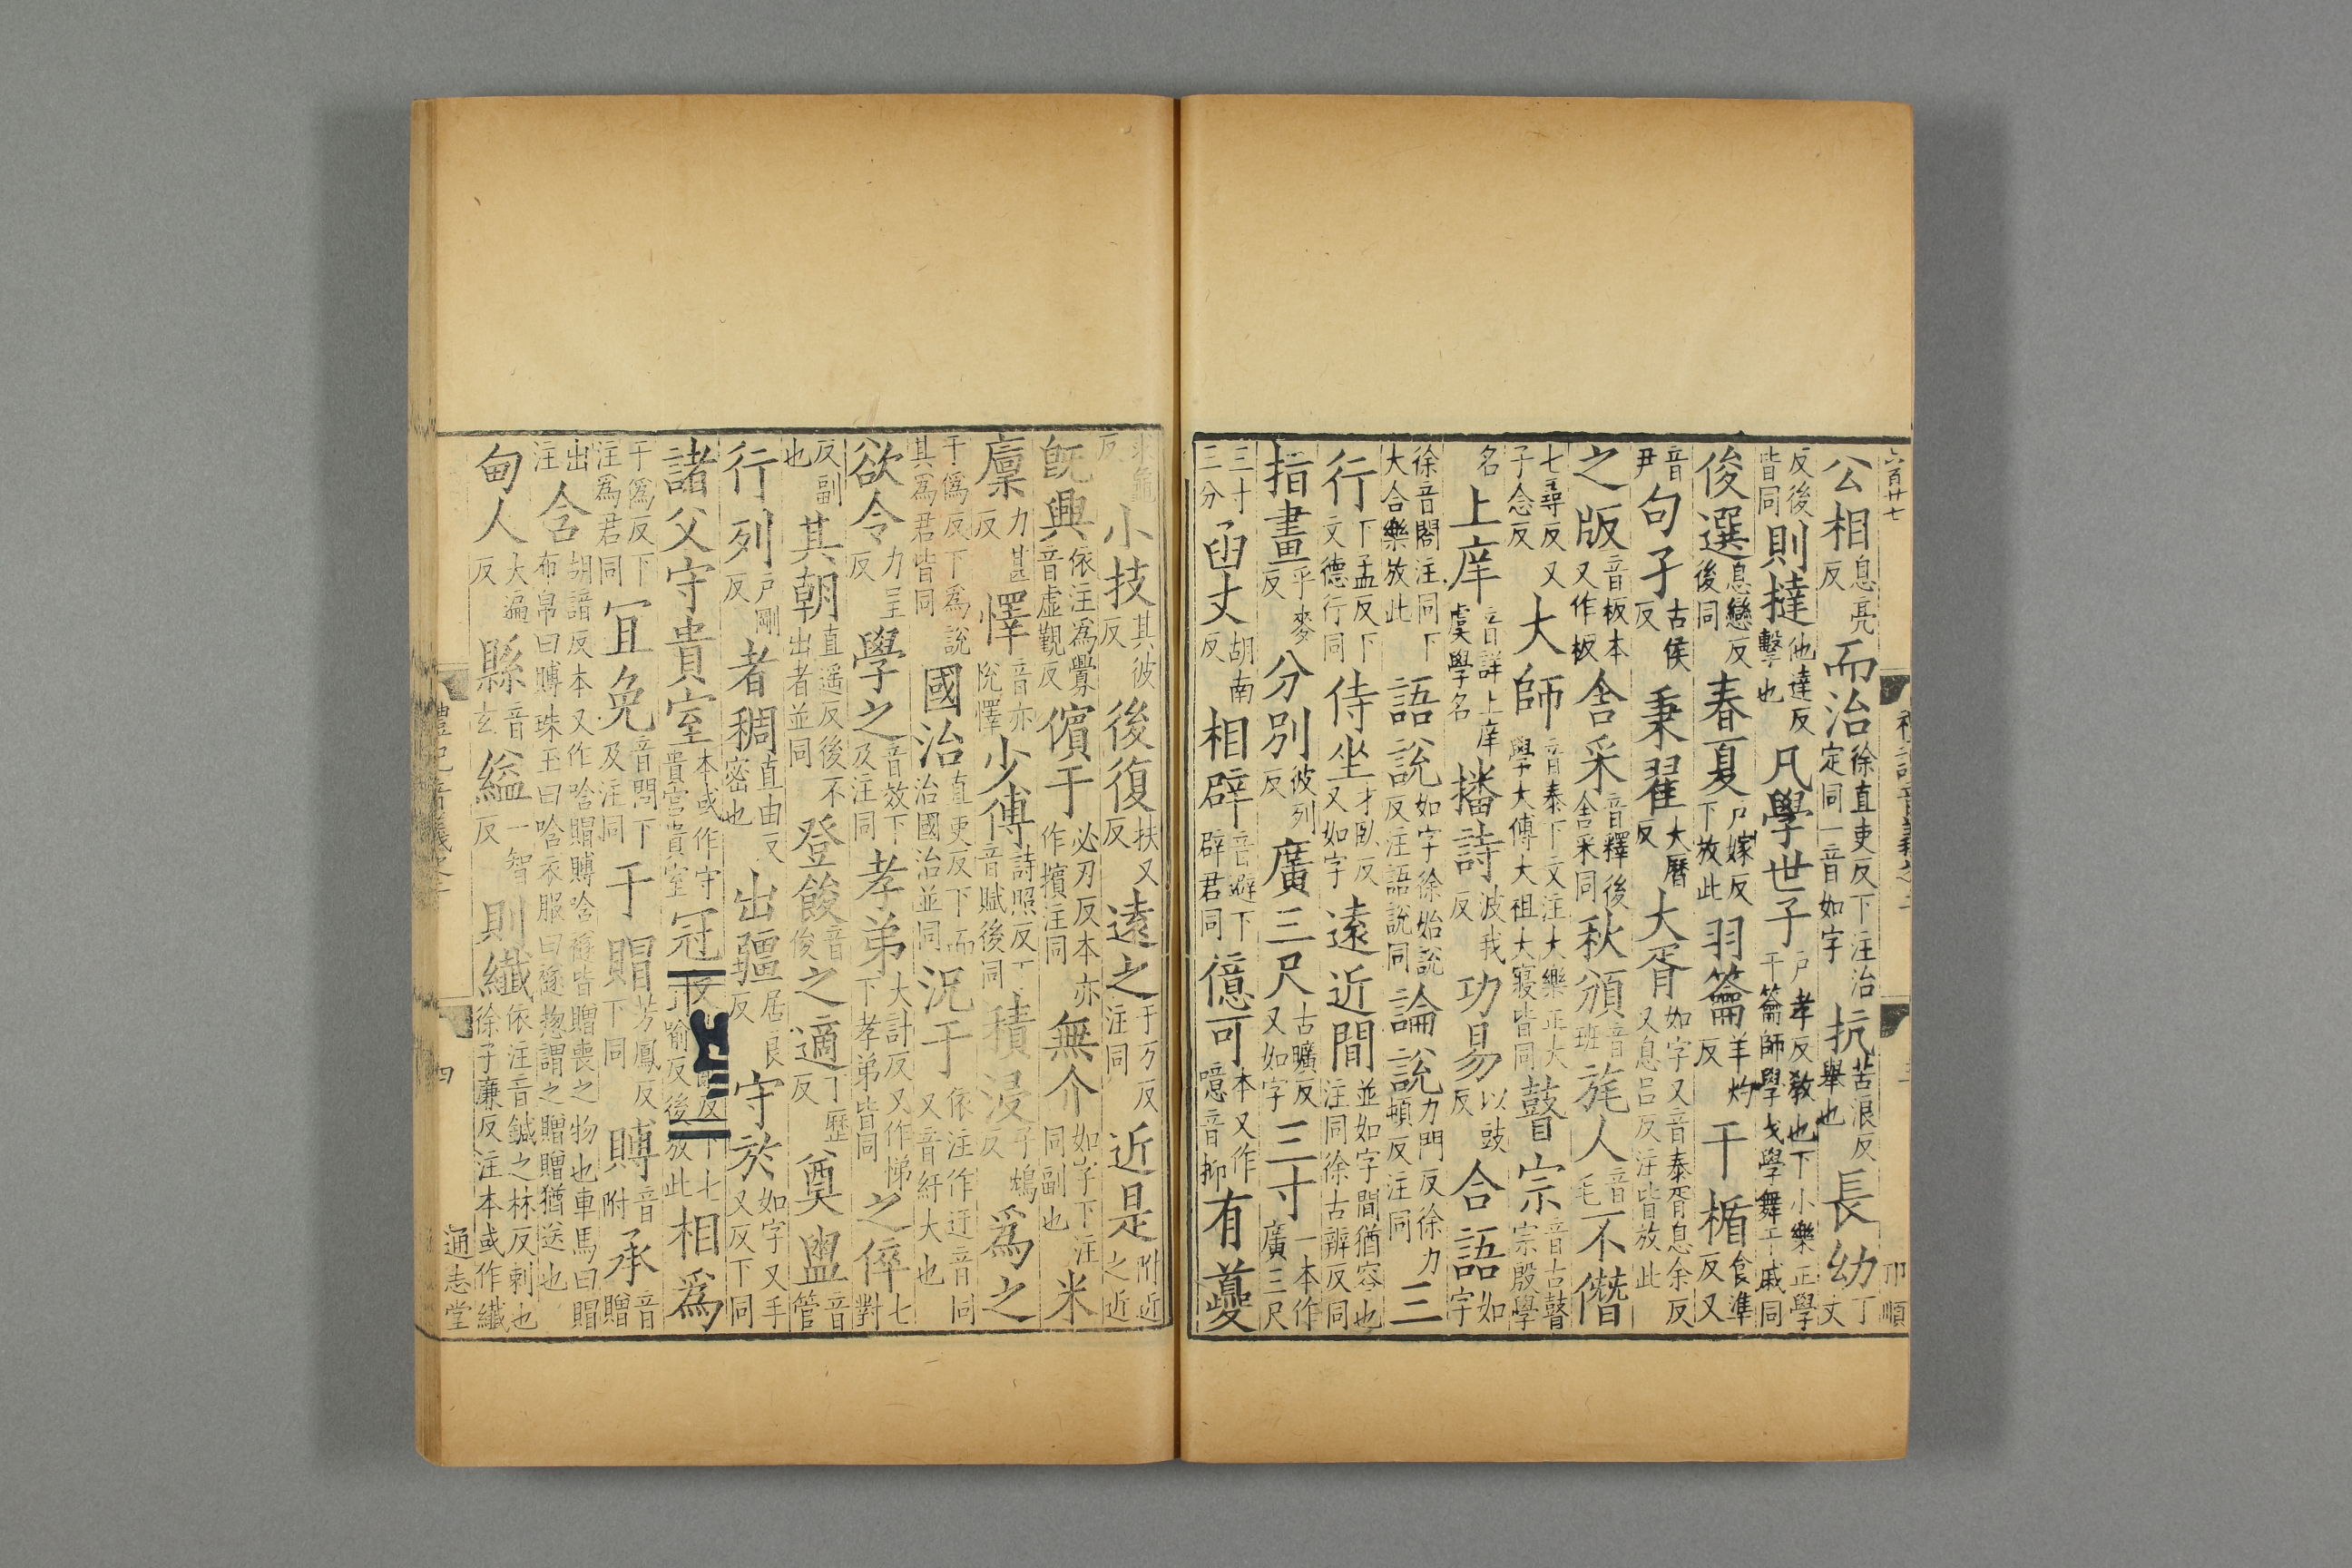 六百廿七 卬順
公相息亮反而治徐直吏反下注治定同一音如字抗苦浪反舉也長幼丁丈
反後皆同則撻他達反擊也凡學世子戶孝反教也下小樂正學干籥師學戈學舞干戚同
俊選息戀反後同春夏戶嫁反下放此羽籥羊灼反干楯食準反又
音尹句孑古侯反秉翟大曆反大胥如字又音泰胥息余反又息呂反注皆放此
之版音板本又作板舍采音釋後舍采同秋頒音班旄人音毛不僭
七尋反又子念反大師音泰下文注大樂正大學大傅大祖大寢皆同瞽宗音古瞽宗殷學
名上庠音詳上庠虞學名播詩波我反功易以豉反合語如字
徐音閤注同下大合樂放此語說如字徐始說反注語說同論說力門反徐力頓反注同三
行下孟反下文德行同侍坐才臥反又如字遠近間並如字間猶容也注同徐古辨反
指畫乎麥反分別彼列反廣三尺古曠反又如字三寸一本作廣三尺
三寸三分函丈胡南反相辟音避下辟君同億可本又作噫音抑有夔
求龜反小技其彼反後復扶又反遠之于万反注同近是附近之近
既興依注為釁音虛覲反儐于必刃反本亦作擯注同無介如字下注同副也米
廩力甚反懌音亦悅懌少傅詩照反下音賦後同積浸子鴆反為之
于偽反下為說其為君皆同國治直吏反下而治國治並同況于依注作迂音同又音紆大也
欲令力呈反學之音效下及注同孝弟大計反又作悌下孝弟皆同之倅七對
反副也其朝直遥反後不出者並同登餕音俊之適丁歷反奠盥音管
行列戶剛反者稠直由反密也出疆居良反守於如字又手又反下同
諸父守貴室本或作守貴宮貴室冠下七喻反後放此相為
于偽反下注為君同冝免音問下及注同于賵芳鳳反下同賻音附承音贈
出注含胡諳反本又作哈賵賻哈襚皆贈喪之物也車馬曰賵布帛曰賻珠玉曰哈衣服曰襚揔謂之贈贈猶送也
甸人大遍反縣音玄縊一智反則纖依注音鍼之林反刺也徐子廉反注本或作纖
四 通志堂